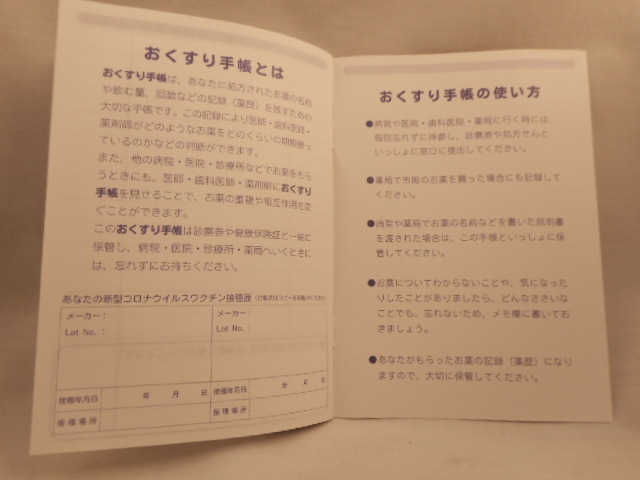 おくすり手帳とは
おくすり手帳は、あなたに処方されたお薬の名前
や飲む量、回数などの記録（薬歴）を残すための
大切な手帳です。この記録により医師・歯科医師・
薬剤師がどのようなお薬をどのくらいの期間使っ
ているのかなどの判断ができます。
また、他の病院・医院・診療所などでお薬をもら
うときにも、医師・歯科医師・薬剤師におくすり
手帳を見せることで、お薬の重複や相互作用を防
ぐことができます。
このおくすり手帳は診察券や健康保険証と一緒に
保管し、病院・医院・診療所・薬局へいくときに
は、忘れずにお持ちください。
あなたの新型コロナウイルスワクチン接種歴
メーカー：
Lot No.：
メーカー：
Lot No.：
接種年月日 年 月 日
接種年月日 年 月 日
接種場所
接種場所
おくすり手帳の使い方
●病院や医院・歯科医院・薬局に行く時には、
毎回忘れずに持参し、診察券や処方せんと
いっしょに窓口に提出してください。
●薬局で市販のお薬を買った場合にも記録して
ください。
●病院や薬局でお薬の名前などを書いた説明書
を渡された場合は、この手帳といっしょに保
管してください。
●お薬についてわからないことや、気になった
りしたことがありましたら、どんなささいな
ことでも、忘れないため、メモ欄に書いてお
きましょう。
●あなたがもらったお薬の記録（薬歴）になり
ますので、大切に保管してください。